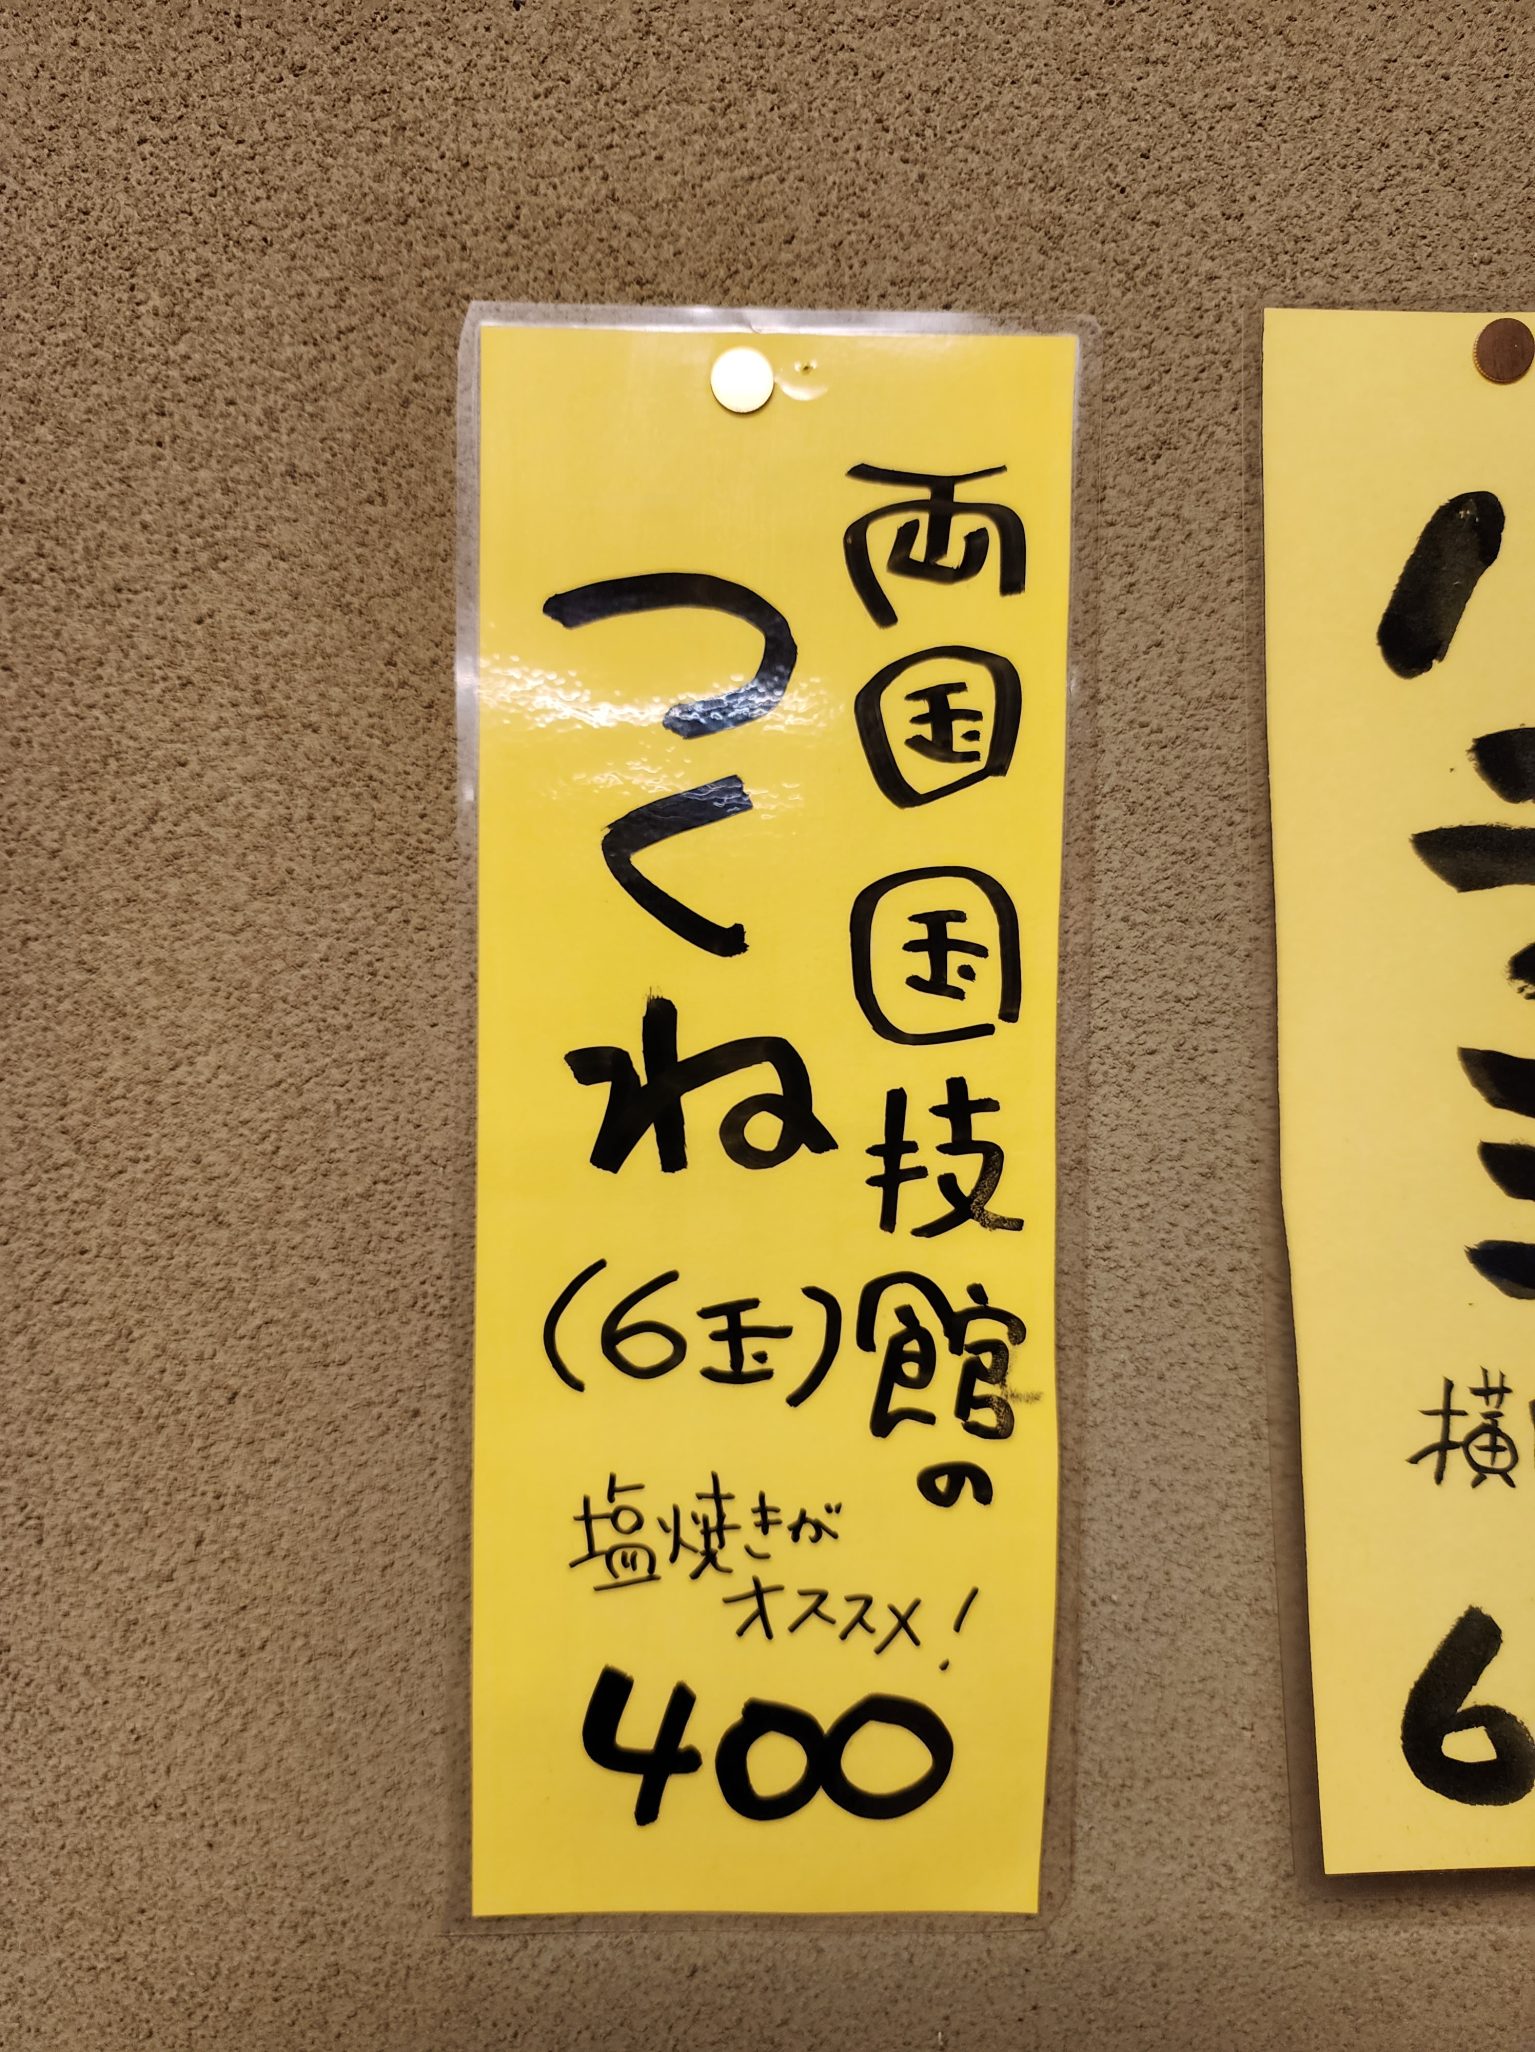 両国国技館の
つくね
(6玉)
塩焼きが
オススメ!
400
横
6